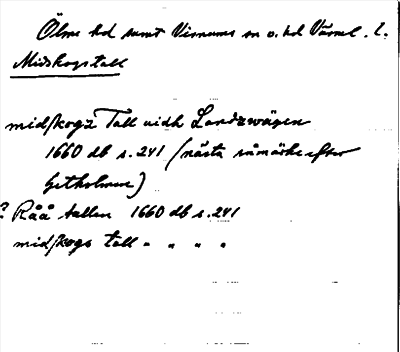 Ölme hd samt Visnums sn o. hd Värml. l.
Midskogstall
midskogz Tall widh Landzwägen
1660 db s. 241 (nästa råmärke efter
Getholmen)
? Råå tallen 1660 db s. 241
midskogs tall " " " "